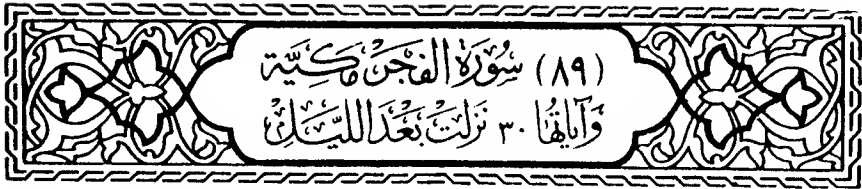 (٨٩) سُورَة الفَجر مَكيَّة
وَآياتهَا ٣٠ نَزلَتْ بَعْدَ الليَّل